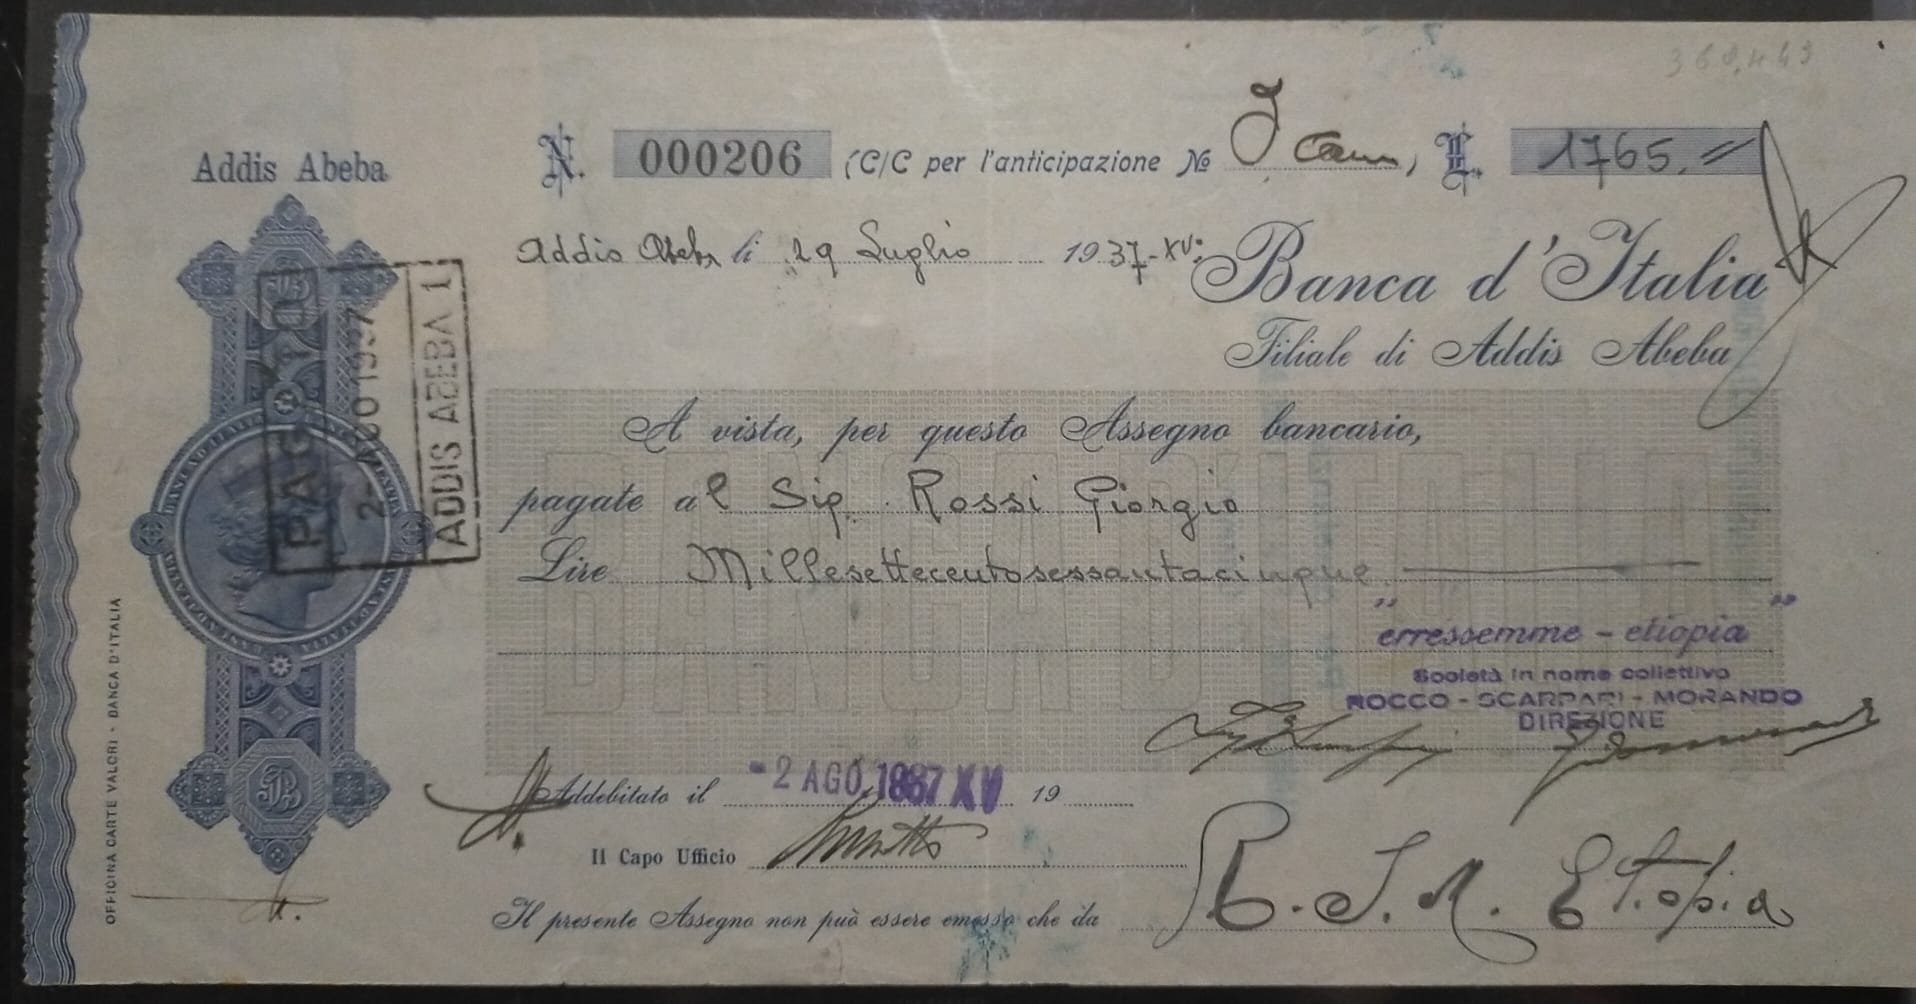 368.443
Addis Abeba
N. 000206 (C/C per l'anticipazione No I Cam, L. 1765.=
Addis Abeba li 29 Luglio 1937-XV:
Banca d'Italia
Filiale di Addis Abeba
A vista, per questo Assegno bancario,
pagate al Sig. Rossi Giorgio
Lire Millesettecentosessantacinque.
BANCA D'ITALIA
" erressemme - etiopia "
Società in nome collettivo
ROCCO - SCARPARI - MORANDO
DIREZIONE
Addebitato il - 2 AGO. 1937 XV 19
Il Capo Ufficio
Il presente Assegno non può essere emesso che da R. S. M. Etiopia
PAGATO
2 - AGO 1937
ADDIS ABEBA 1
OFFICINA CARTE VALORI - BANCA D'ITALIA